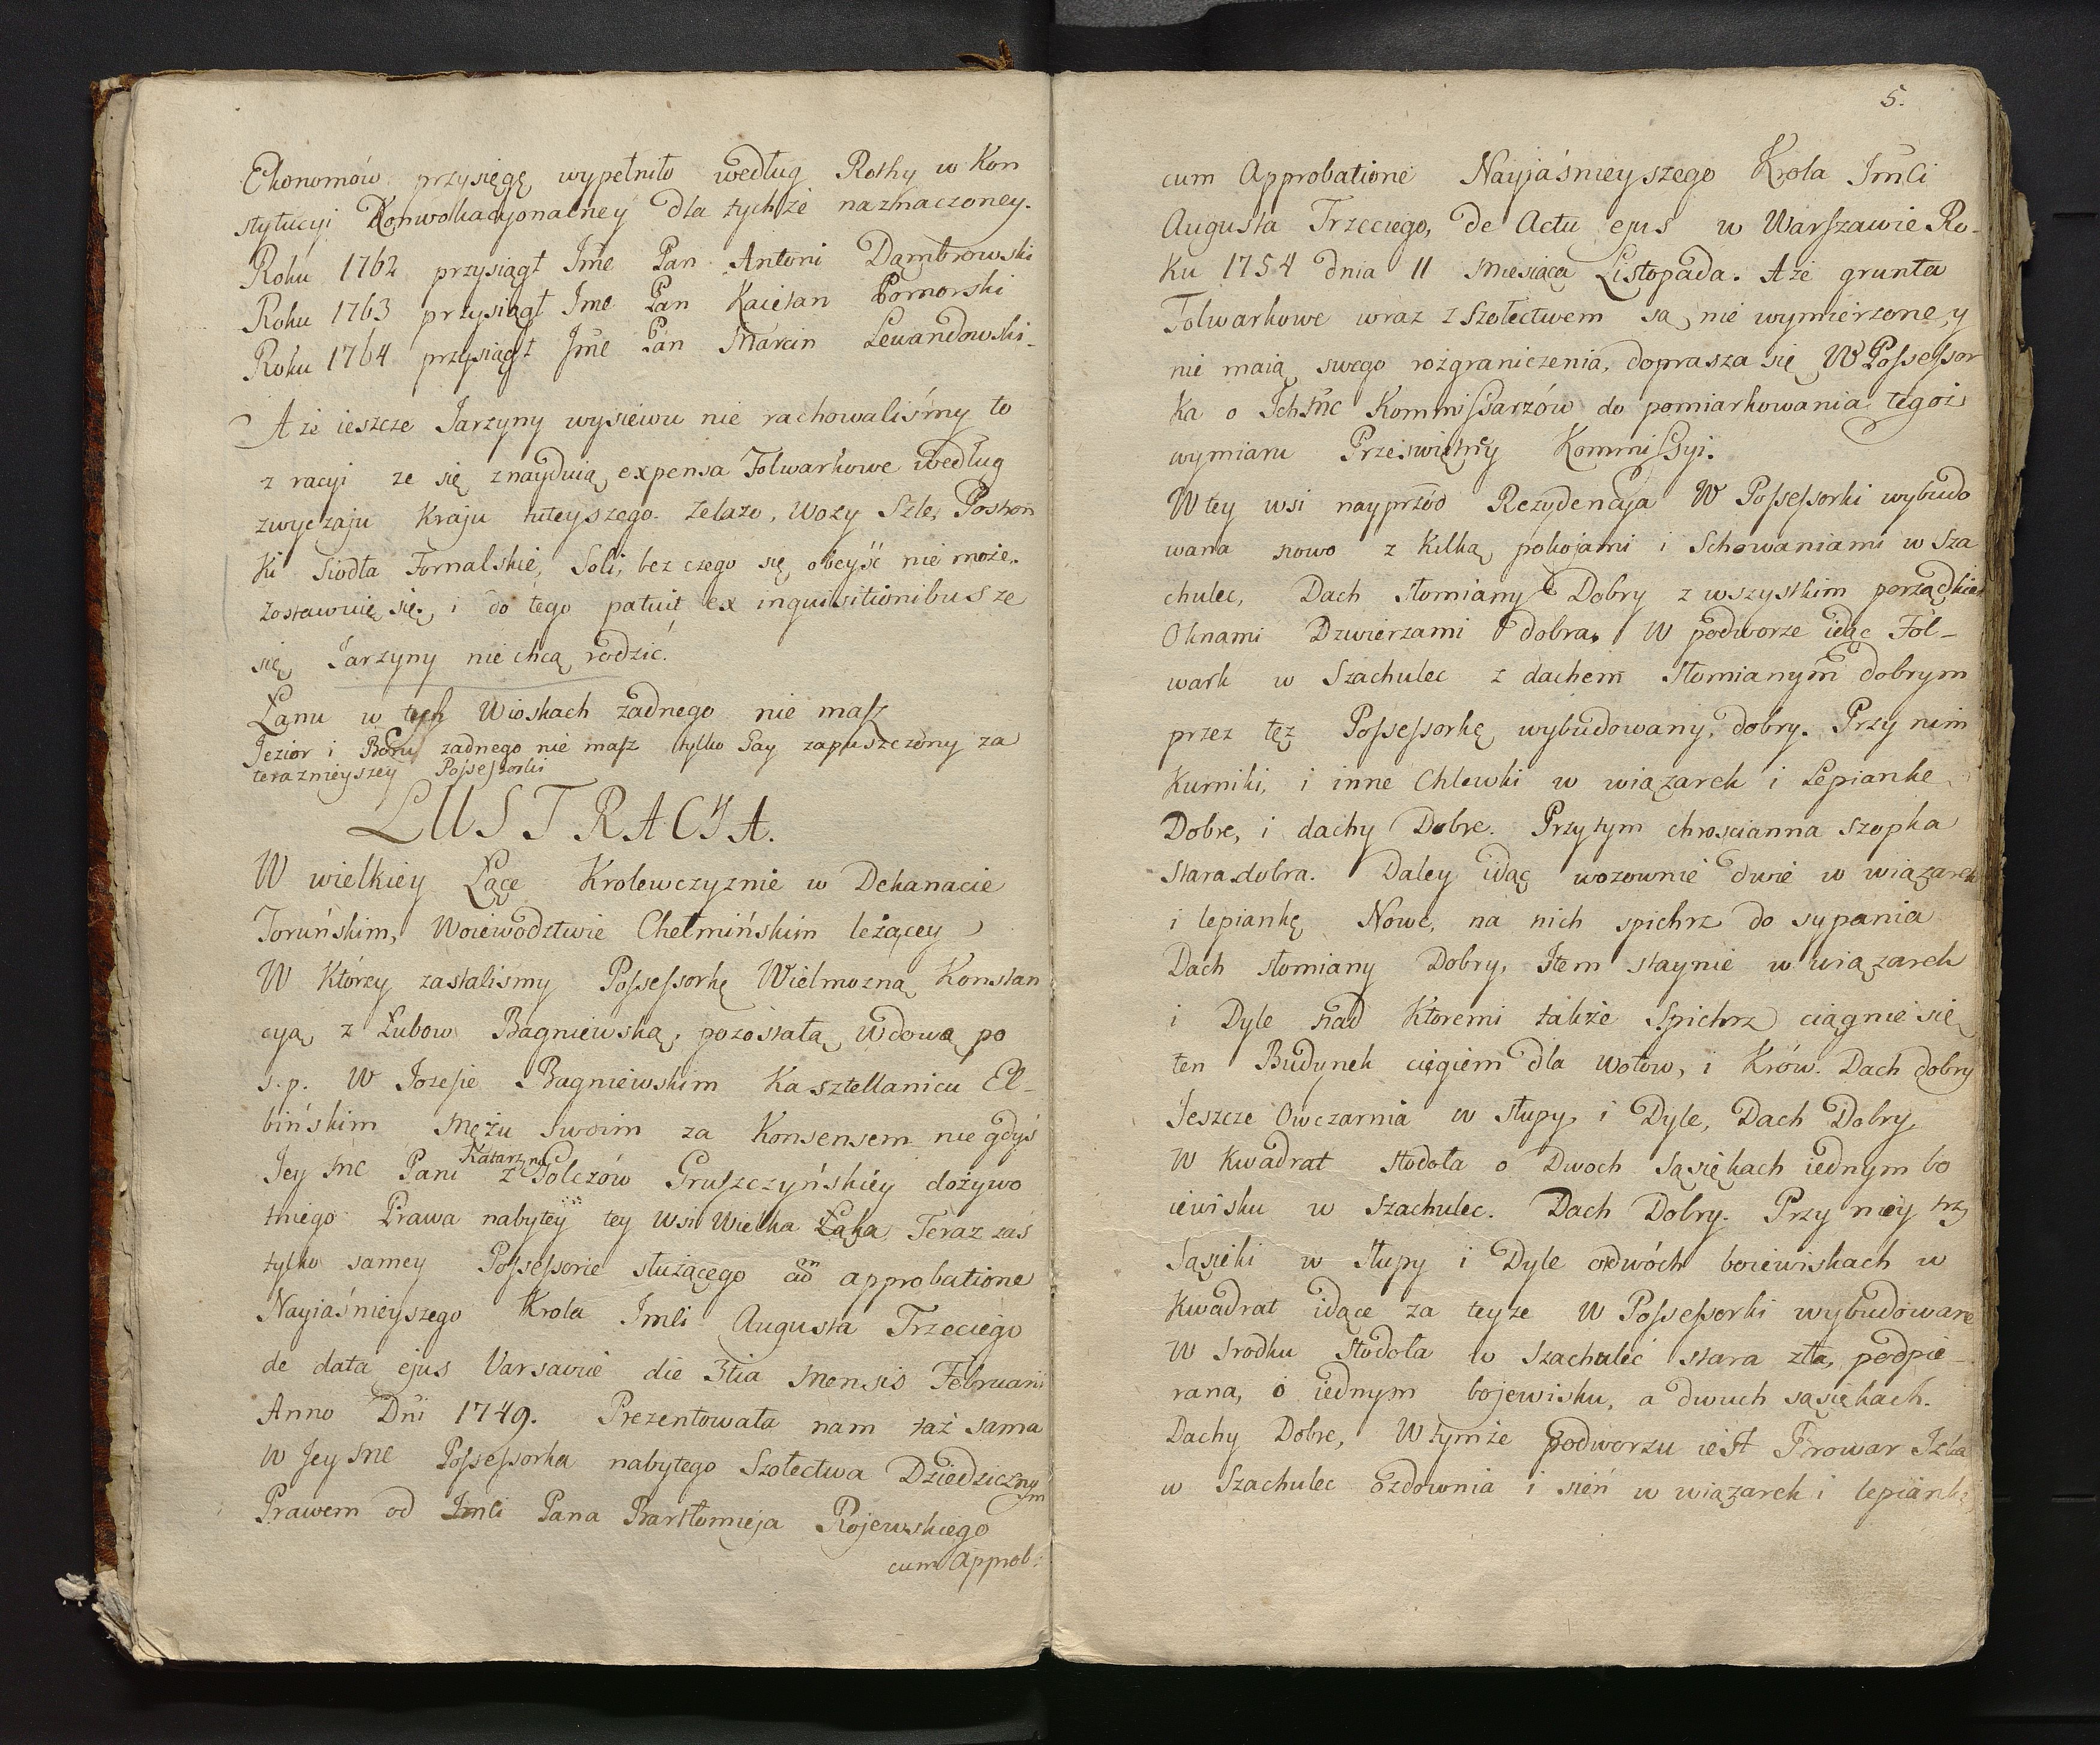 Ekonomów przysięgę wypełniło według Rothy w Kon
stytucyi Konwokacyonalney dla tychże naznaczoney.
Roku 1762 przysiągł Jme Pan Antoni Dąmbrowski
Roku 1763 przysiągł Jme Pan Kaietan Pomorski
Roku 1764 przysiągł Jme Pan Marcin Lewandowski.
A że ieszcze Jarzyny wysiewu nie rachowaliśmy to
z racyi ze się znayduią expensa Folwarkowe według
zwyczaju Kraju tuteyszego. Zelazo, Wozy Szle, Postron
ki Siodła Fornalskie, Soli, bez czego się obeyść nie może.
zostawuię się. i do tego patuit ex inquisitionibus ze
się Jarzyny nie chcą rodzić.
Łanu w tych Wioskach żadnego nie masz
Jezior i Boru zadnego nie masz tylko Gay zapuszczony za
teraznieyszey Possessorki
LUSTRACYA.
W wielkiey Łące Krolewczyznie w Dekanacie
Toruńskim, Woiewodztwie Chełmińskim leżącey
W Którey zastalismy Possessorkę Wielmozną Konstan
cyą z Łubow Bagniewską, pozostałą Wdową po
s.p. W Jozefie Bagniewskim Kasztellanicu El-
bińskim Mężu Swoim za Konsensem niegdyś
Jey Mc Pani Katarzyny z Golczów Gruszczyńskiey dożywo
tniego Prawa nabytey tey Wsi Wielka Łąka Teraz zaś
tylko samey Possessorie służącego ad approbatione
Nayiaśnieyszego Krola Jmci Augusta Trzeciego
de data ejus Varsavie die 3tia Mensis Februarii
Anno Dni 1749. Prezentowała nam taż sama
W Jey Mc Possessorka nabytego Szołectwa Dziedzicznym
Prawem od Jmci Pana Barstomieja Rojewskiego
cum approb:
5.
cum Approbatione Nayjaśnieyszego Krola Jmci
Augusta Trzeciego, de Actu ejus w Warszawie Ro-
ku 1754 dnia 11 Miesiąca Listopada. A że grunta
Folwarkowe wraz z Szołectwem są nie wymierzone, y
nie maią swego rozgraniczenia, doprasza się W Possessor
ka o Ichmc Kommissarzów do pomiarkowania tegoż
wymiaru Prześwietney Kommissyi.
W tey wsi nayprzód Rezydencya W Possessorki wybudo
wana nowo z kilką pokojami i Schowaniami w Sza
chulec, Dach słomiany Dobry z wszystkim porządkiem
Oknami Dzwierzami dobra. W podworze idąc Fol-
wark w Szachulec z dachem słomianym dobrym
przez tęz Possessorkę wybudowany, dobry. Przy nim
Kurniki, i inne Chlewki w wiązarek i Lepiankę
Dobre, i dachy Dobre. Przytym chroscianna szopka
stara dobra. Daley idąc wozownie dwie w wiązarek
i lepiankę Nowe, na nich spichrz do sypania
Dach słomiany Dobry, Item staynie w wiązarek
i Dyle nad Ktoremi także Spichrz ciągnie się
ten Budynek ciągiem dla Wołow, i Krów. Dach dobry
Jeszcze Owczarnia w słupy i Dyle, Dach Dobry,
W Kwadrat stodoła o Dwoch sąsiękach iednym bo
iewisku w Szachulec. Dach Dobry. Przy niey trzy
Sąsieki w słupy i Dyle o dwóch boiewiskach w
Kwadrat idące za teyze W Possessorki wybudowane
W srodku stodoła w Szachulec stara zła, podpie-
rana, o iednym bojewisku, a dwuch sąsiękach.
Dachy Dobre, W tymże podworzu iest Browar Izba
w Szachulec Ozdownia i sień w wiązarek i lepiankę